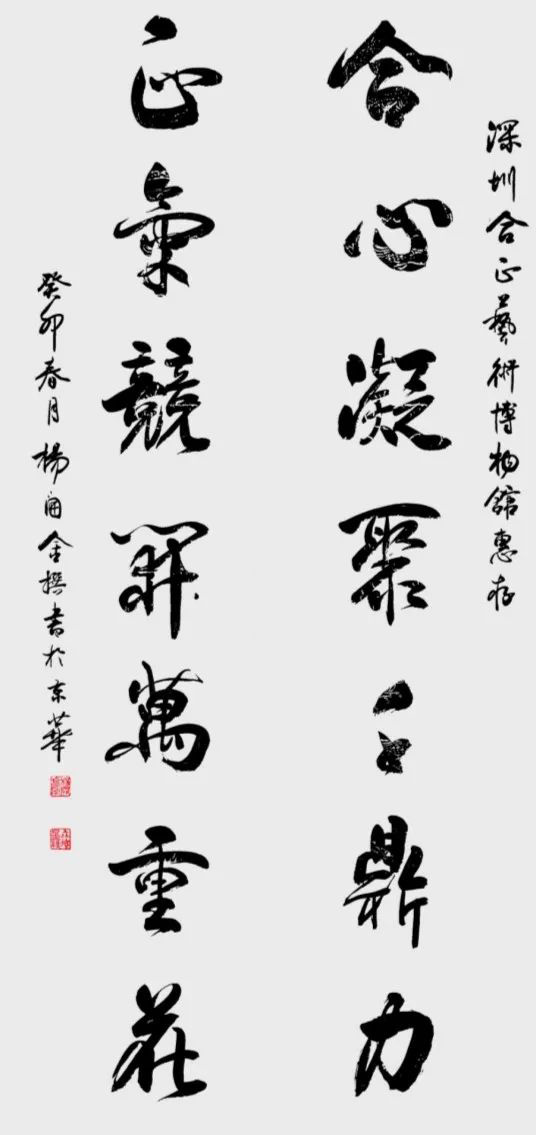 深圳合正藝術博物館惠存
合心凝聚千鼎力
正氣競開萬重花
癸卯春月楊金撰書於东華